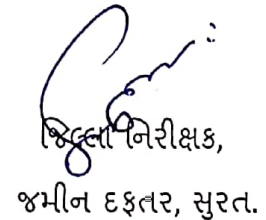 જિલ્લા નિરીક્ષક,
જમીન દફતર, સુરત.